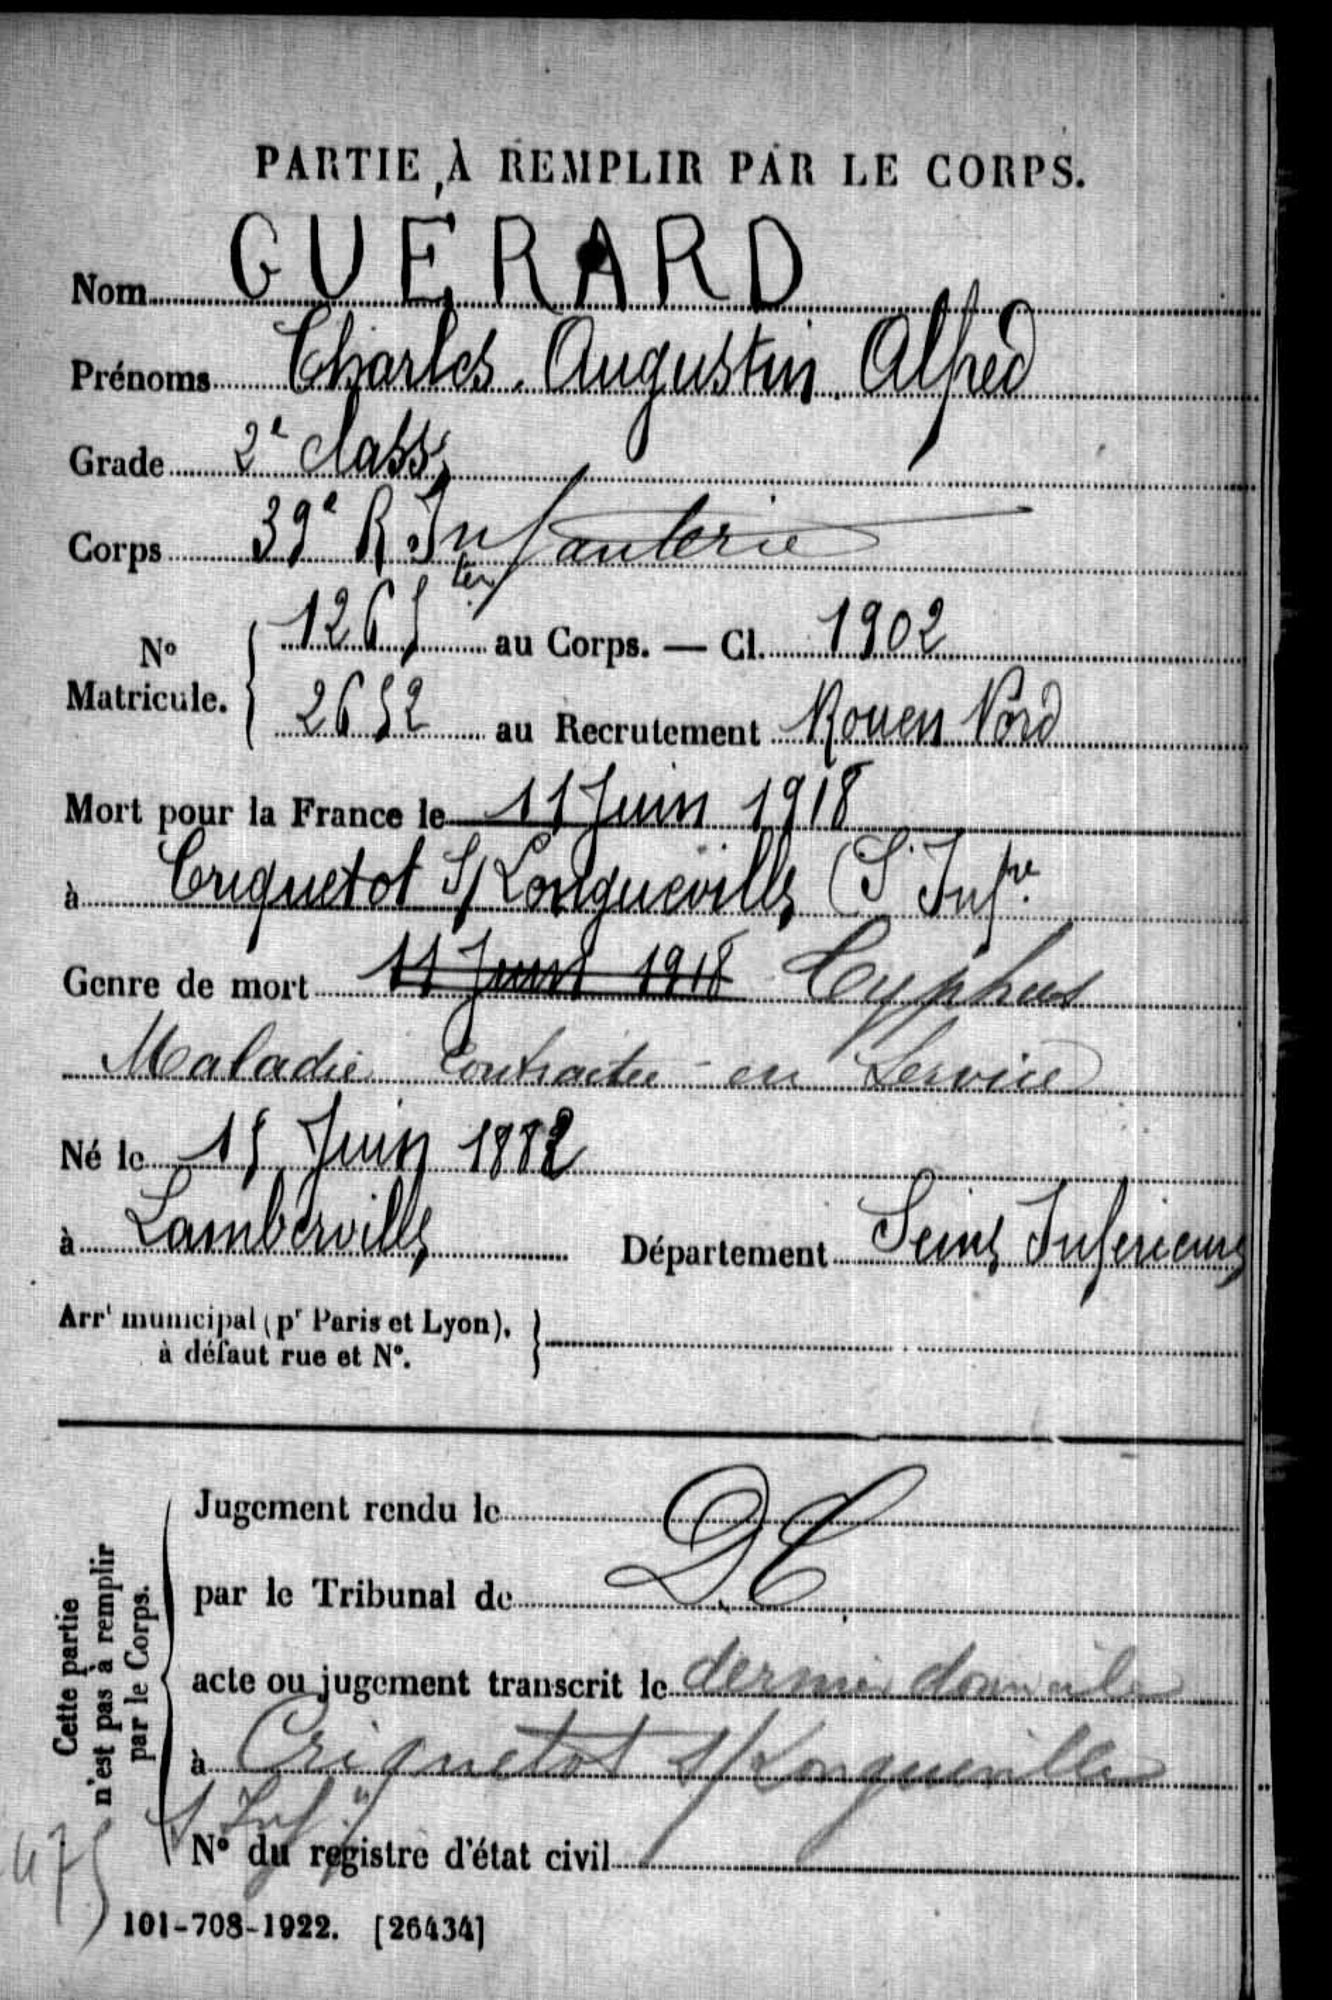 PARTIE À REMPLIR PAR LE CORPS.
Nom GUERARD
Prénoms Charles Augustin Alfred
Grade 2e classe
Corps 39e R. Infanterie
ter
1265 au Corps. — Cl. 1902
N° Matricule.
2652 au Recrutement Rouen Nord
Mort pour la France le 11 Juin 1918
à Criquetot S/ Longueville (S. Infre
Genre de mort 11 Juin 1918 Typhus
Maladie Contractée en Service
Né le 15 Juin 1882
à Lamberville Département Seine Inferieure
Arrt municipal (pr Paris et Lyon),
à défaut rue et N°.
Cette partie
n'est pas à remplir
par le Corps.
Jugement rendu le
par le Tribunal de D.C.
acte ou jugement transcrit le dernier domicile
à Criquetot s/ Longueville
S. Infre
N° du registre d'état civil
475
101-708-1922. [26434]